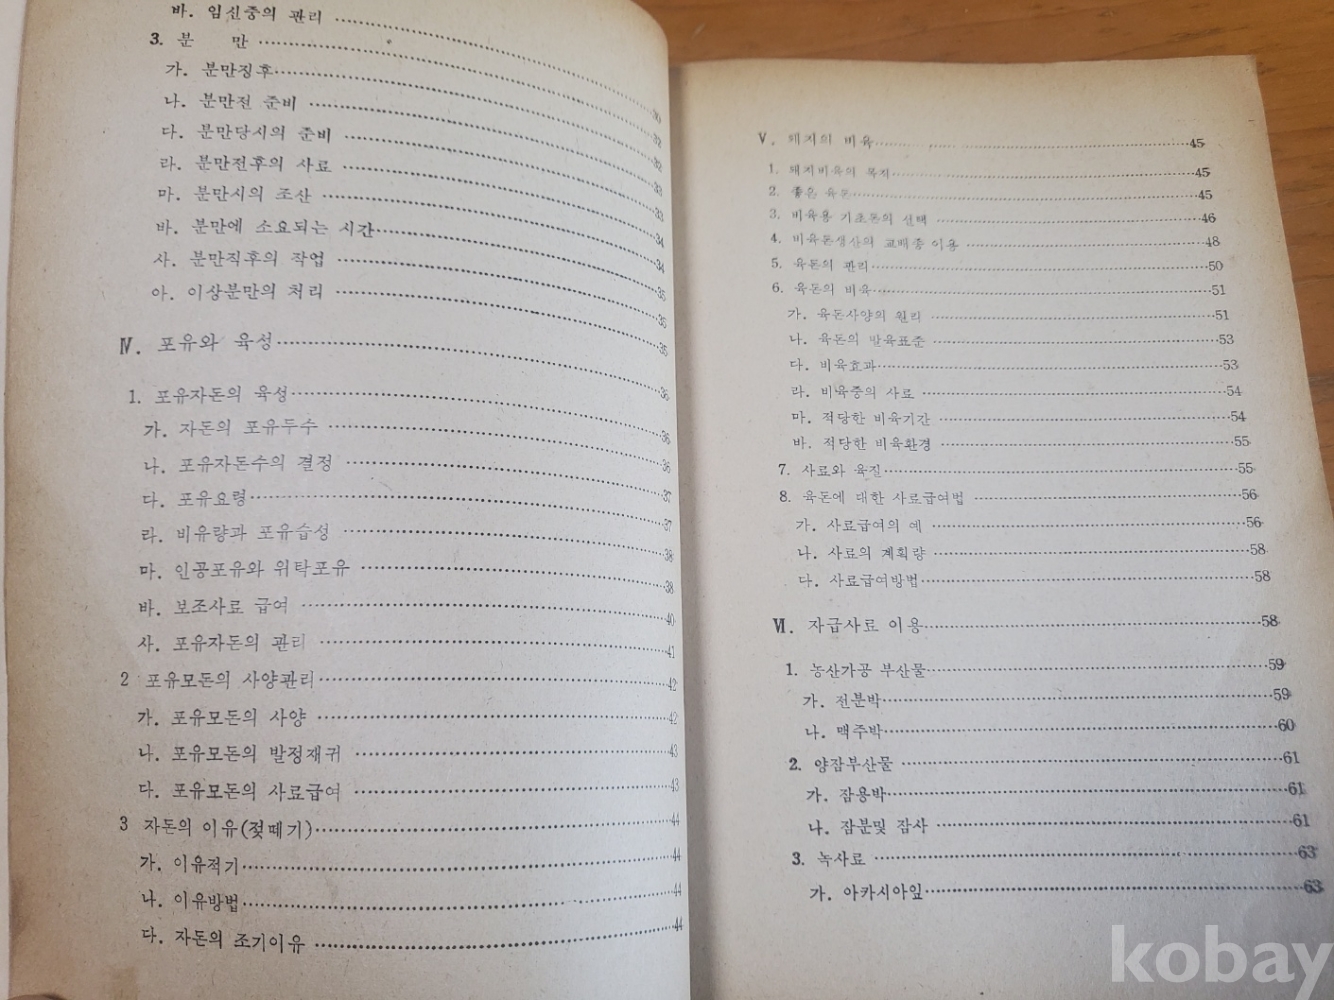 바. 임신중의 관리 30
3. 분 만 32
가. 분만징후 32
나. 분만전 준비 33
다. 분만당시의 준비 33
라. 분만전후의 사료 34
마. 분만시의 조산 34
바. 분만에 소요되는 시간 35
사. 분만직후의 작업 35
아. 이상분만의 처리 35
Ⅳ. 포유와 육성 36
1. 포유자돈의 육성 36
가. 자돈의 포유두수 36
나. 포유자돈수의 결정 37
다. 포유요령 37
라. 비유량과 포유습성 38
마. 인공포유와 위탁포유 38
바. 보조사료 급여 40
사. 포유자돈의 관리 41
2 포유모돈의 사양관리 42
가. 포유모돈의 사양 42
나. 포유모돈의 발정재귀 43
다. 포유모돈의 사료급여 43
3 자돈의 이유(젖떼기) 44
가. 이유적기 44
나. 이유방법 44
다. 자돈의 조기이유 44
Ⅴ. 돼지의 비육 45
1. 돼지비육의 목적 45
2. 좋은 육돈 45
3. 비육용 기초돈의 선택 46
4. 비육돈생산의 교배종 이용 48
5. 육돈의 관리 50
6. 육돈의 비육 51
가. 육돈사양의 원리 51
나. 육돈의 발육표준 53
다. 비육효과 53
라. 비육중의 사료 54
마. 적당한 비육기간 54
바. 적당한 비육환경 55
7. 사료와 육질 55
8. 육돈에 대한 사료급여법 56
가. 사료급여의 예 56
나. 사료의 계획량 58
다. 사료급여방법 58
Ⅵ. 자급사료 이용 58
1. 농산가공 부산물 59
가. 전분박 59
나. 맥주박 60
2. 양잠부산물 61
가. 잠용박 61
나. 잠분및 잠사 61
3. 녹사료 63
가. 아카시아잎 63
kobay